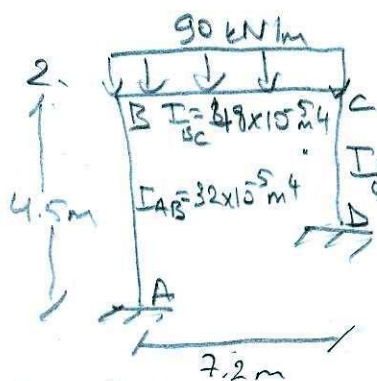 90 kN/m
2.
B
C
I_BC = 348x10^-5 m^4
4.5m
I_AB = 32x10^-5 m^4
I
D
A
7.2 m